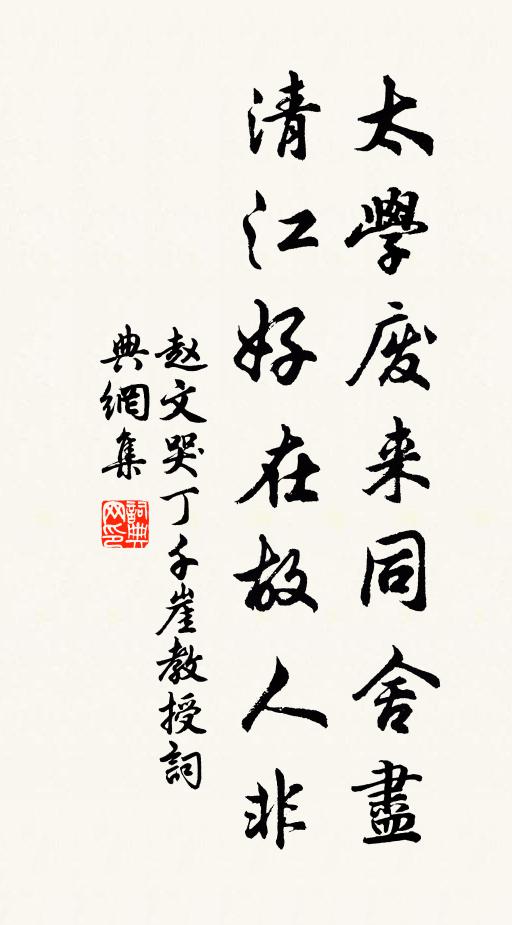 太學廢来同舍盡
清江好在故人非
赵文哭丁千崖教授詞
典網集
詞典
网印